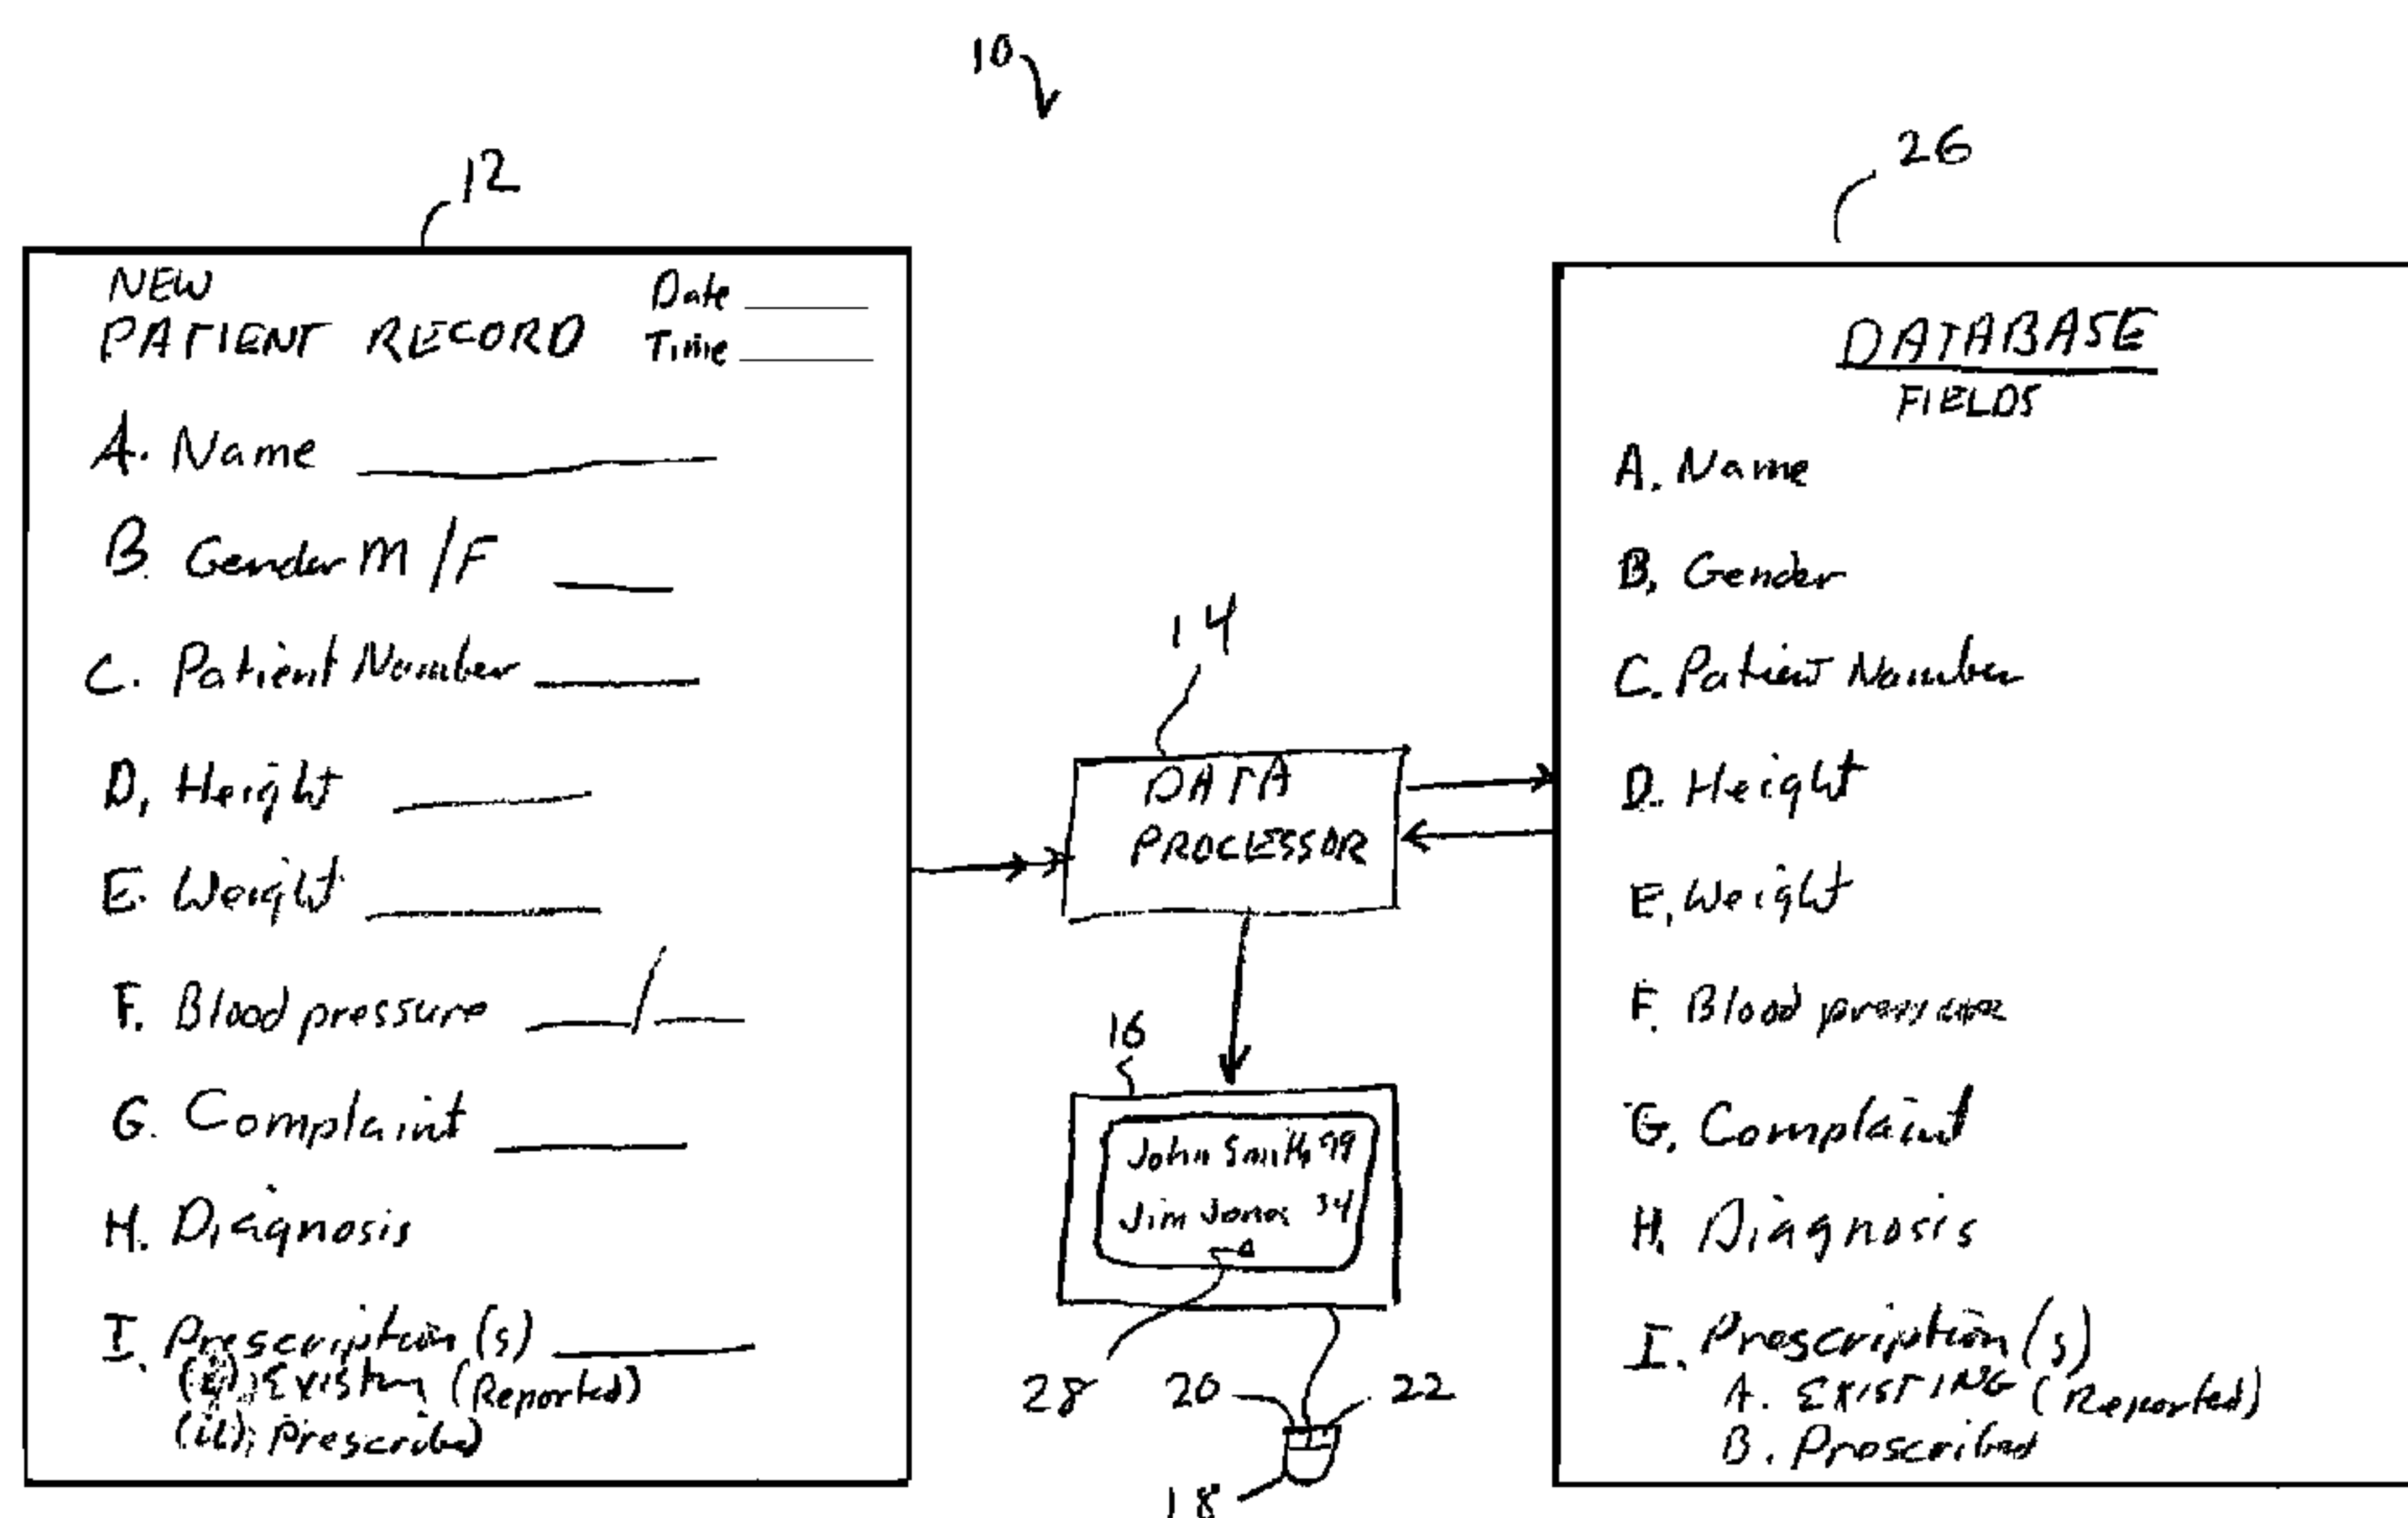 10
12
NEW
PATIENT RECORD
Date
Time
A. Name
B. Gender M/F
C. Patient Number
D. Height
E. Weight
F. Blood pressure __/__
G. Complaint
H. Diagnosis
I. Prescription(s)
(Reported)
(ii) Prescribed
14
DATA
PROCESSOR
16
John Smith
Jim Jones 34
28
20
22
18
26
DATABASE
FIELDS
A. Name
B. Gender
C. Patient Number
D. Height
E. Weight
F. Blood pressure
G. Complaint
H. Diagnosis
I. Prescription(s)
A. EXISTING (Reported)
B. Prescribed